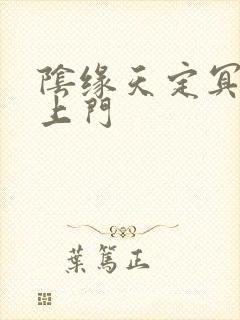 陰缘天定冥
上門
葉篤正